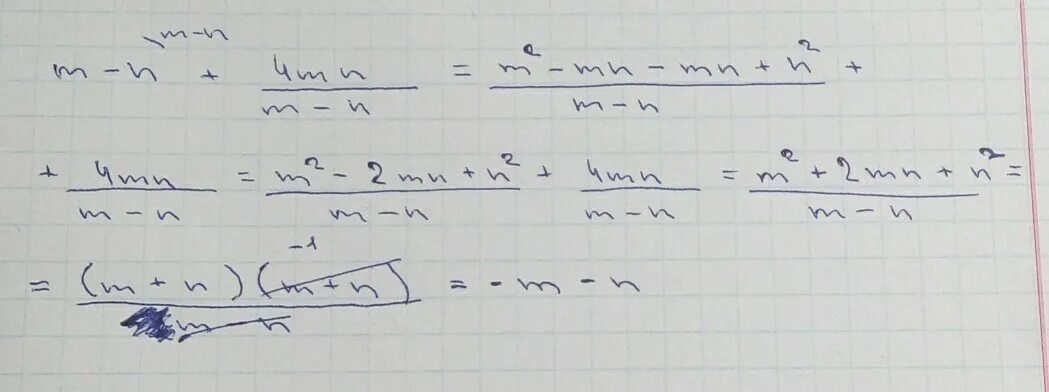 m - n \ m-n + 4mn / m - n = m² - mn - mn + n² / m - n +
+ 4mn / m - n = m² - 2mn + n² / m - n + 4mn / m - n = m² + 2mn + n² / m - n =
= (m + n)(m + n) -1 / m - n = - m - n